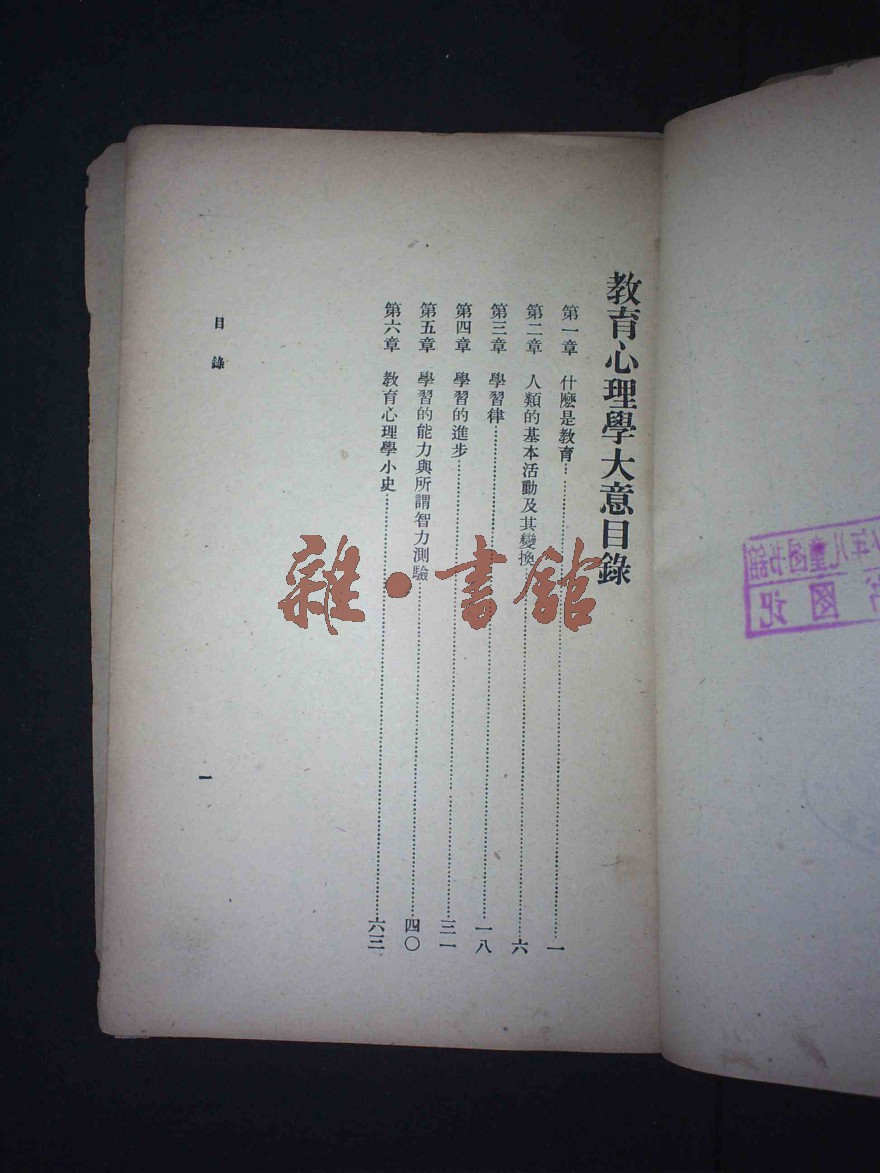 教育心理學大意目錄
第一章 什麽是教育……一
第二章 人類的基本活動及其變換……六
第三章 學習律……一八
第四章 學習的進步……三一
第五章 學習的能力與所謂智力測驗……四〇
第六章 教育心理學小史……六三
目錄
一
雜·書館
年儿童图书馆
图记